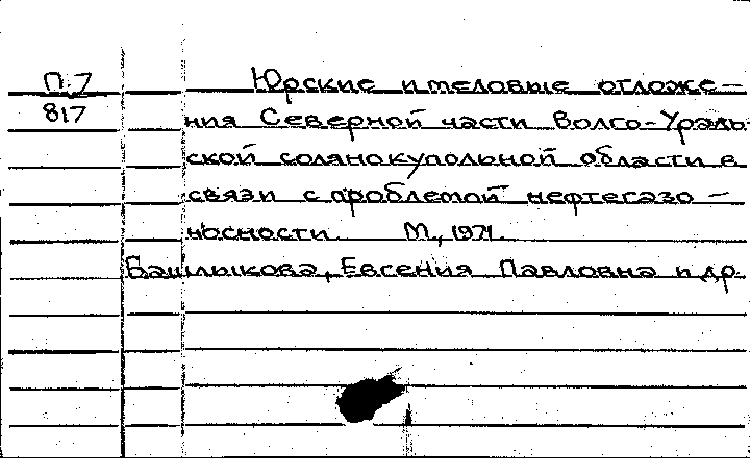 П:7 Юрские и меловые отложе-
817 ния Северной части Волго-Ураль-
ской солянокупольной области в
связи с проблемой нефтегазо-
носности. М., 1971.
Башлыкова, Евсения Павловна и др.